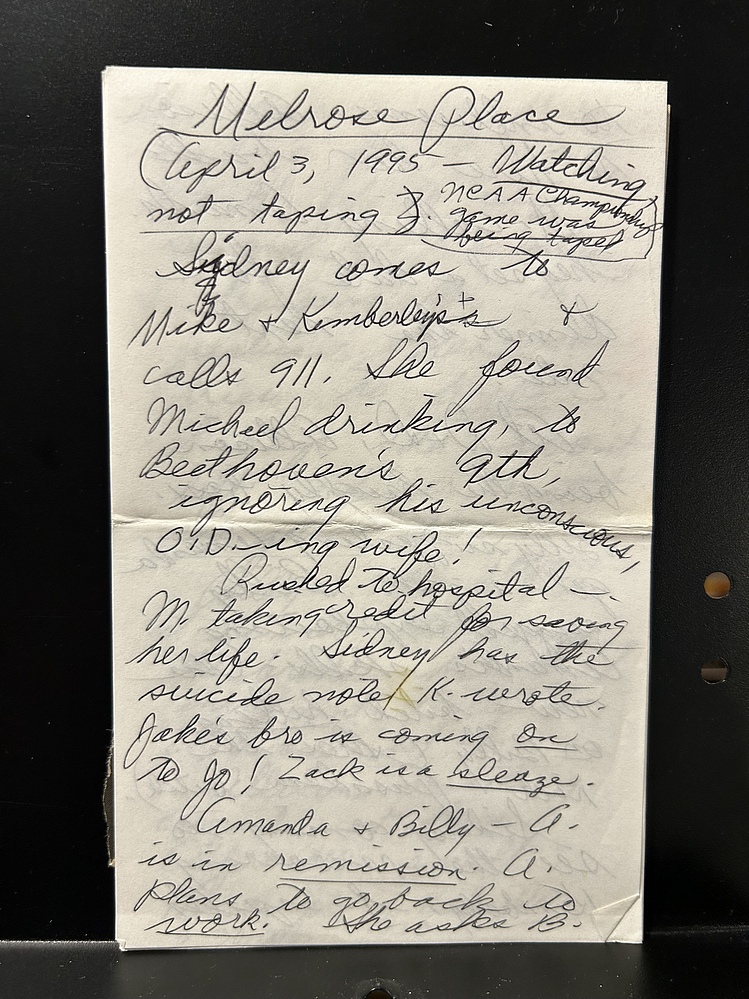 Melrose Place
(April 3, 1995 — Watching,
not taping). NCAA Championship
game was
being taped
Sydney comes to
Mike & Kimberley's &
calls 911. She found
Michael drinking, to
Beethoven's 9th,
ignoring his unconscious,
O.D.-ing wife!
Rushed to hospital —.
M. taking credit for saving
her life. Sidney has the
suicide note K. wrote.
Jake's bro is coming on
to Jo! Zack is a sleaze.
Amanda & Billy — A.
is in remission. A.
plans to go back to
work. She asks B.